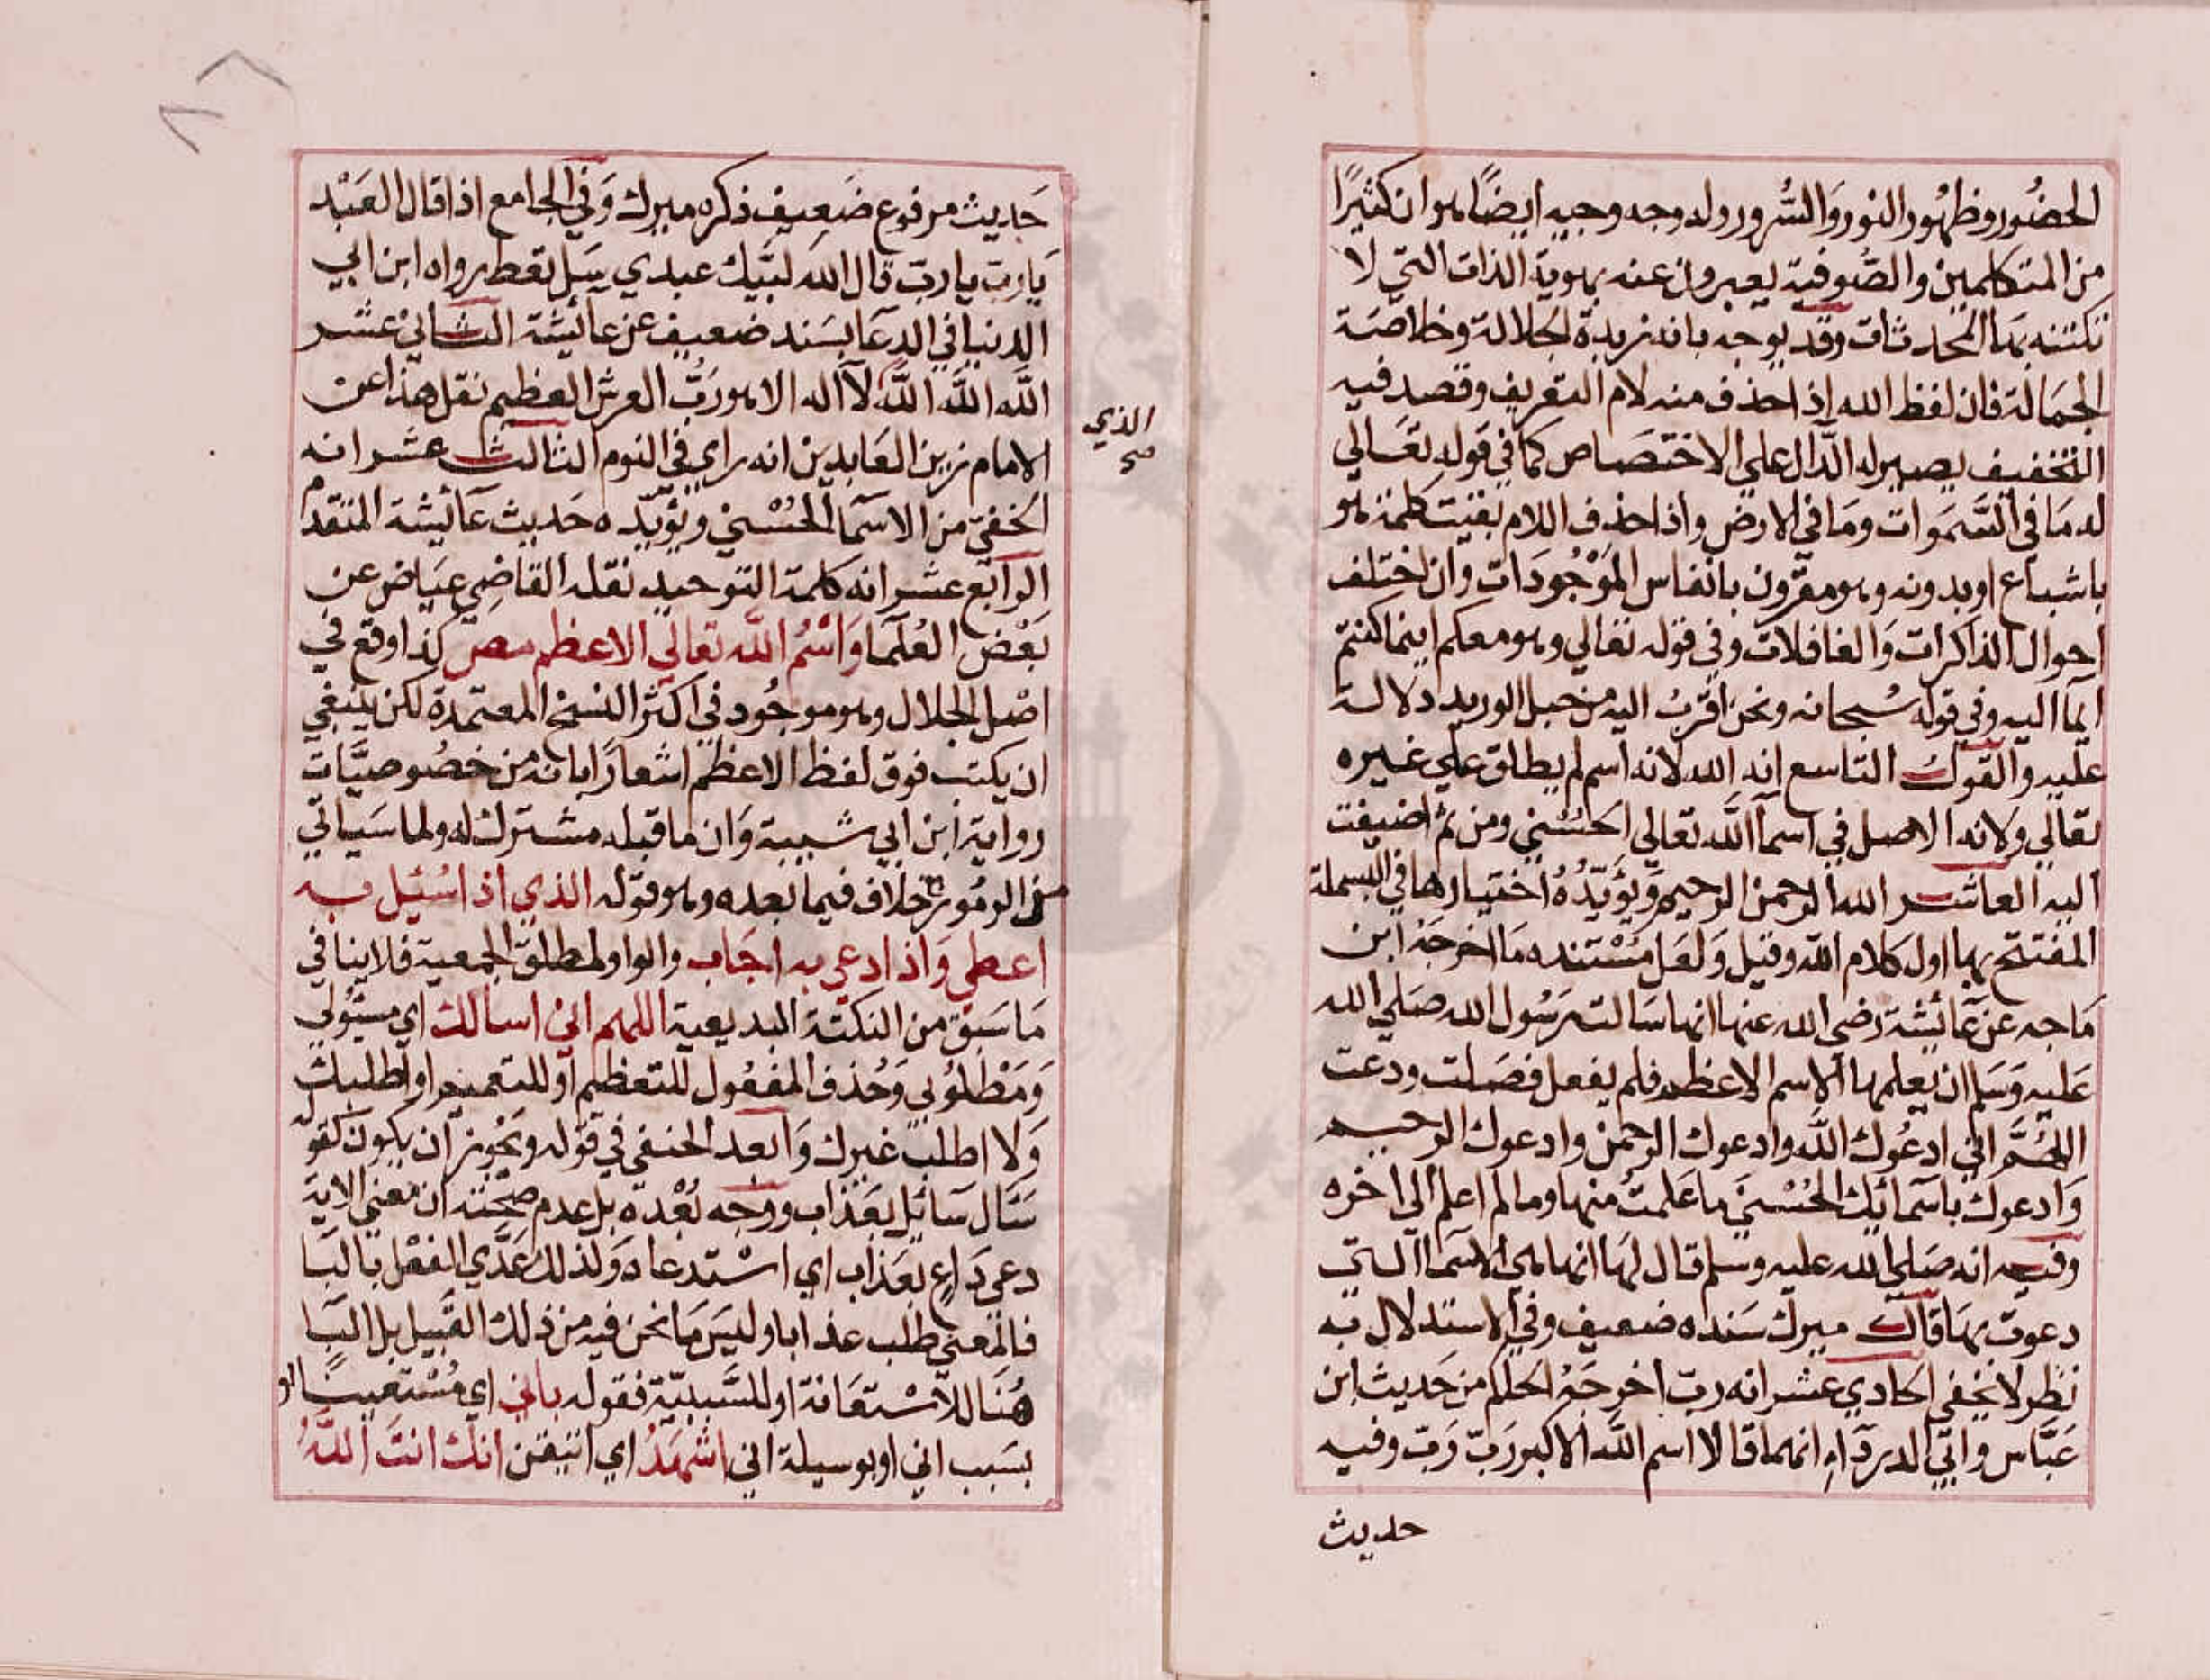 الحضُور وظهُور النور وَالسُّرور وله وجه وجيه ايضًا هو ان كثيرًا
من المتكلمين والصُّوفية يعبرون عنه بهوية الذات التي لا
تكتنه بها المحدثات وقد يوجه بانه زبدة الجلالة وخلاصة
الجمالة فان لفظ الله اذا حذف منه لام التعريف وقصد فيه
التخفيف يصير له الدّال علي الاختصَاص كما في قوله تعَالي
له مَا في السَّمَوات ومَا في الارض واذا حذف اللام بقيت كلمة هو
باشباع او بدونه وهو مقرون بانفاس المَوْجُودَات وان اختلف
احوال الذاكرات وَالغافلات وفي قوله تعالي وهو معكم اينما كنتم
ايما اليه وفي قوله سُبحانه ونحن اقربُ اليه من حبل الوريد دلالة
عليه والقول التاسع انه الله لانه اسم لم يطلق علي غيره
تعَالي ولانه الاصل في اسماَ اللَّه تعالي الحسُني ومن ثم اضيفت
اليه العاشر الله الرحمن الرحيم وَيؤَيّدُهُ اختيارها في البسملة
المفتتح بها اول كلام الله وقيل وَلعَل مسْتنده مَا اخرجَهَ ابن
مَاجه عن عَائشة رضي الله عنها انها سَالت رَسُول الله صَلي الله
عَليه وَسَلم ان يعلمها الاسم الاعظم فلم يفعل فصَلت ودعت
اللهُمَّ اني ادعُوك اللَّه وادعوك الرحمن وادعوك الرحيم
وَادعوك باسمائك الحُسْني ما عَلمتُ منها وما لم اعلم الي اخره
وفيه انه صَلي الله عليه وسلم قال لهَا انها لفي الاسمَا التي
دعوت بهَا قال ميرك سَنده ضعيف وفي الاستدلال به
نظر لا يخفي الحادي عشر انه ربّ اخرجَهُ الحاكم من حَديث ابن
عَبَّاس وابي الدرداءِ انهما قالا اسم اللَّه الاكبر رَبّ رَبّ وفيه
حديث
حَديث مرفوع ضَعيف ذكره ميرك وَفي الجامع اذا قال العَبْد
يَا ربّ يا ربّ قال الله لبَّيك عبدي سَل تعط رواه ابن ابي
الدنيا في الدعَا بسَند ضعيف عن عَائشة الثاني عشر
اللَّه اللَّه اللَّه لآ اله الا هو رَبُّ العرش العظيم نقل هذا عن
الذي
صح
الامام زين العَابدين انه راي في النوم الثالث عشر انه
الخفيّ من الاسمآ الحُسْني ويؤيّده حَديث عَائشة المتقدم
الرابع عشر انه كلمة التوحيد نقله القاضي عيَاض عن
بَعْض العُلمَا وَاسْمُ اللَّه تعالي الاعظم مص كذا وقع في
اصْل الجلال وهو موجُود في اكثر النسخ المعتمدة لكن ينبغي
ان يكتب فوق لفظ الاعظم اشعارًا بانه من خصُوصيَّات
رواية ابن ابي شيبة وَان ما قبله مشترك له ولما سَياتي
من الرمُوز خلاف فيما بعده وهو قوله الذي اذا سُئل به
اعطي وَاذا دعي به اجَاب والواو لمطلق الجمعية فلا ينافي
مَا سَبق من النكتة البديعية اللهم اني اسالك اي مسئولي
وَمَطْلُوبي وَحُذف المفعُول للتعظيم او للتعميم او اطلبك
وَلا اطلب غيرك وَابعد الحنفي في قوله ويَجُوز ان يكون كقوله
سَال سَائل بعَذاب ووجه بُعْده بل عدم صحّته ان معني الاية
دعى دَاعٍ بعَذاب اي اسْتدعاه وَلذلك عَدَّي الفعْل بالبَا
فالمَعني طلب عذابا وليسَ مَا نحن فيه من ذلك القبيل بل البَا
هُنَا للاسْتعَانة او للسَّببيّة فقوله باني اي مُسْتعينا او
بسَبب اني او بوسيلة اني اشهَدُ اي اتيقن انك انتَ اللَّهُ